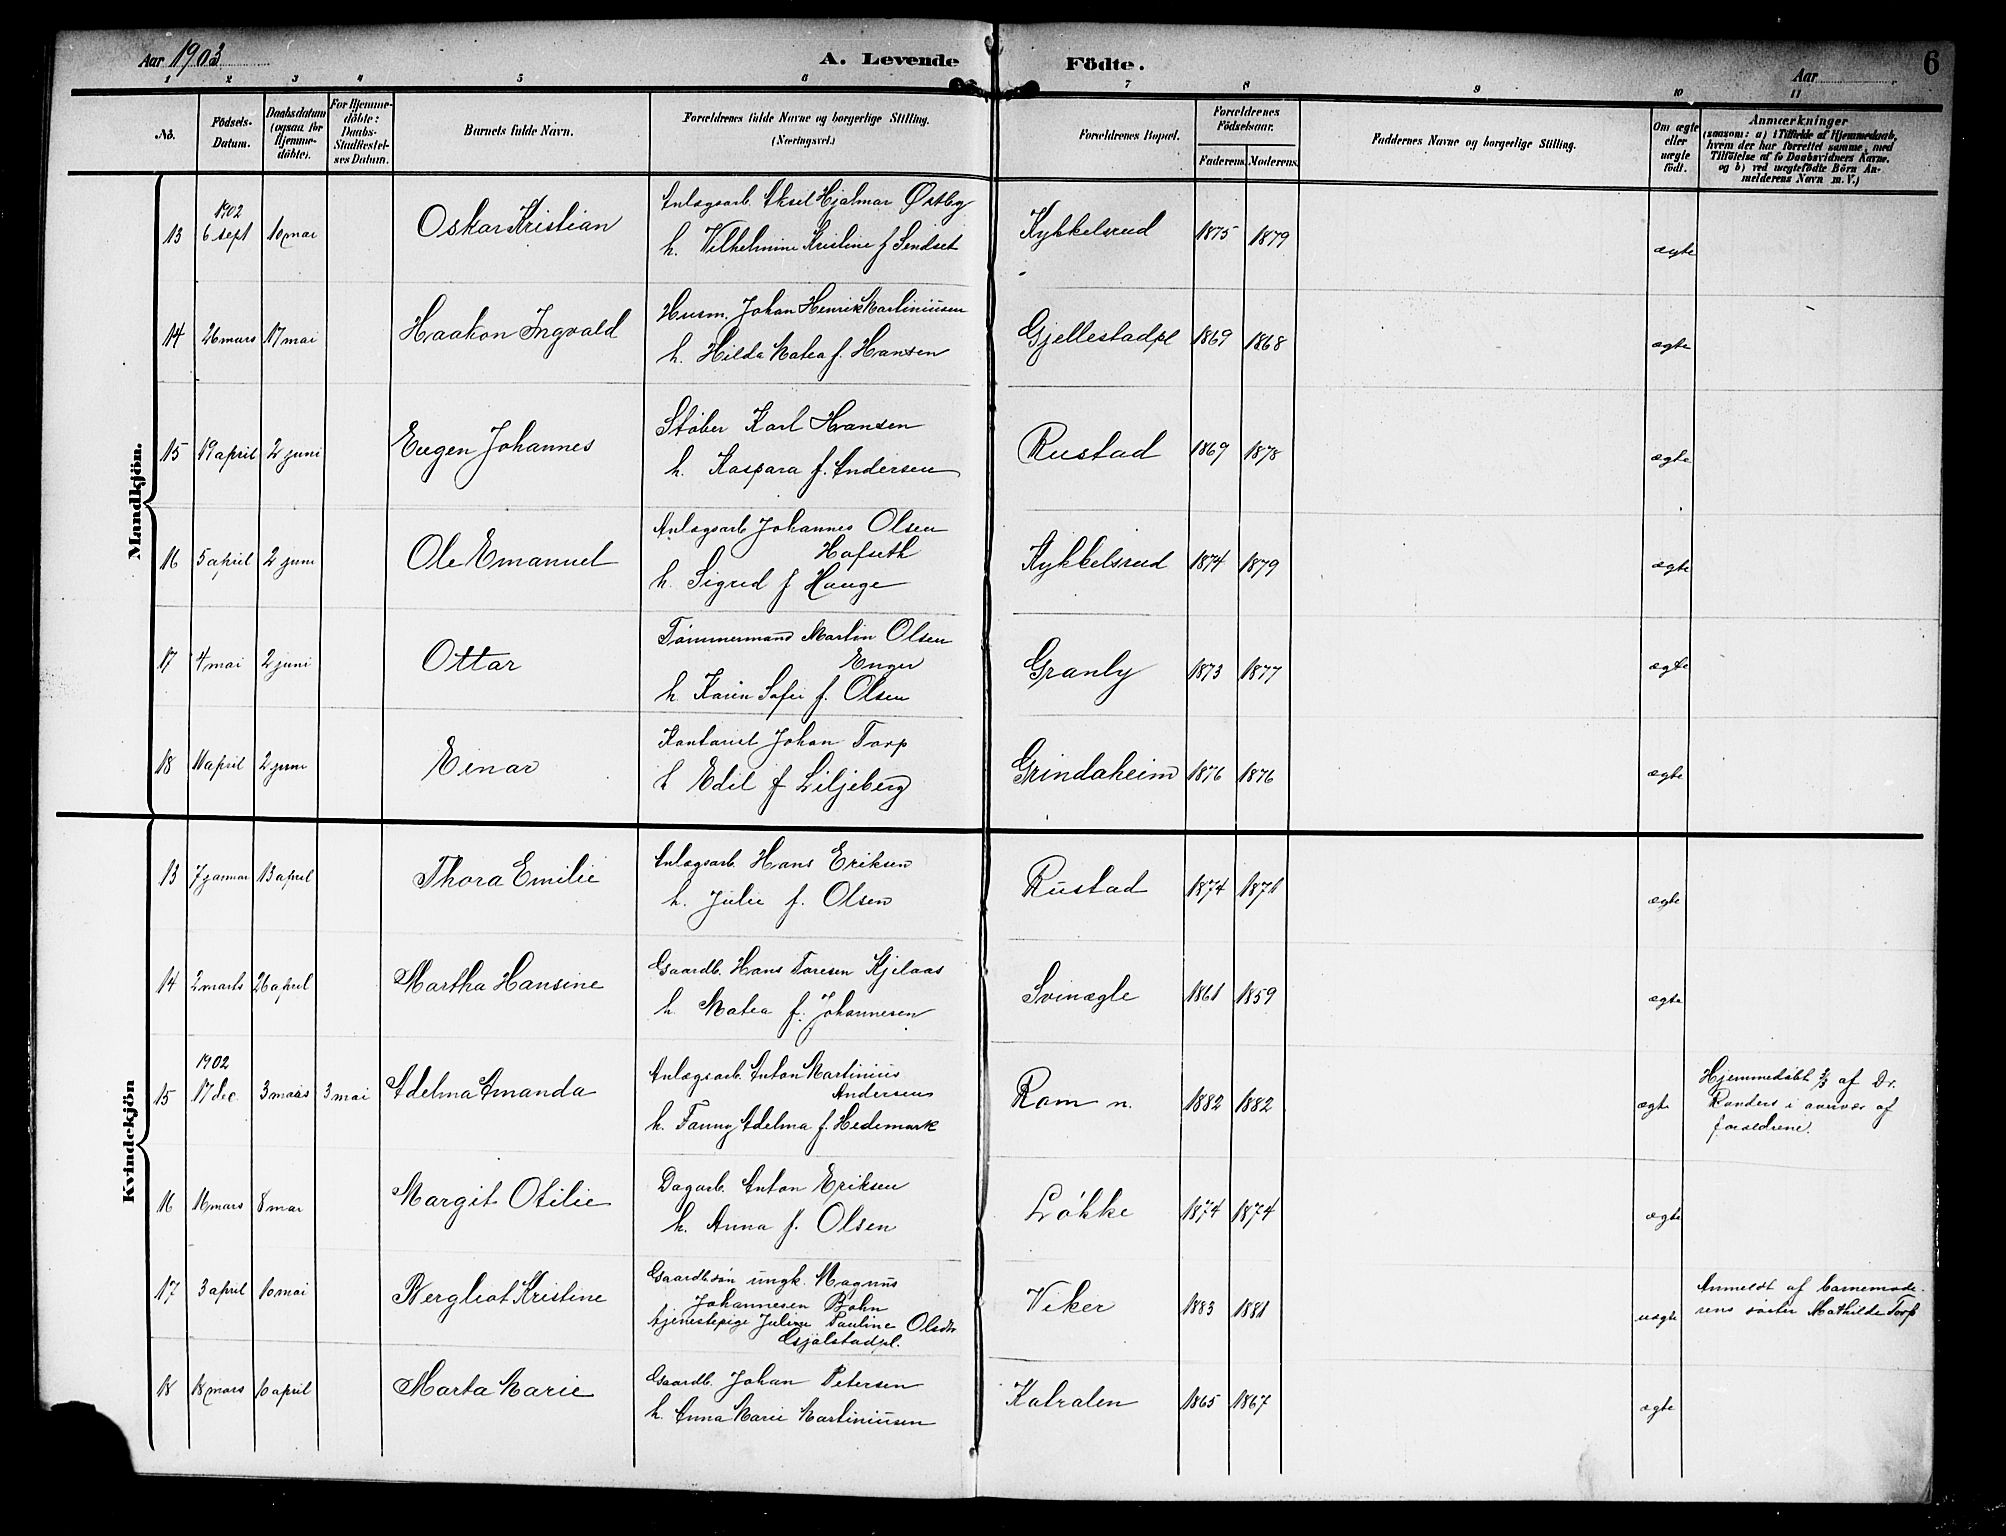 Aar 1903
A. Levende Födte.
Aar
6
1 2 3 4 5 6 7 8 9 10 11
No.
Födsels-Datum.
Daabsdatum (ogsaa for Hjemmedöbte).
For Hjemmedöbte: Daabs-Stadfæstelses Datum.
Barnets fulde Navn.
Forældrenes fulde Navne og borgerlige Stilling. (Næringsvei.)
Forældrenes Bopæl.
Forældrenes Födselsaar.
Faderens. Moderens.
Faddernes Navne og borgerlige Stilling.
Om ægte eller uægte födt.
Anmærkninger
(saasom: a) i Tilfælde af Hjemmedaab, hvem der har forrettet samme, med Tilföielse af to Daabsvidners Navne. og b) ved uægtefödte Börn Anmelderens Navn m. V.)
Mandkjön.
13 1902 6 sept 10 mai Oskar Kristian Anlægsarb. Aksel Hjalmar Østby
h. Vilhelmine Kristine f Sendset Kykkelsrud 1875 1879 ægte
14 26 mars 17 mai Haakon Ingvald Husm. Johan Henrik Martiniusen
h. Hilda Matea f. Hansen Gjellestadpl 1869 1868 ægte
15 19 april 2 juni Eugen Johannes Støber Karl Hansen
h. Kaspara f. Andersen Rustad 1869 1878 ægte
16 5 april 2 juni Ole Emanuel Anlægsarb Johannes Olsen
Hafseth
h. Sigrid f Hauge Kykkelsrud 1874 1879 ægte
17 4 mai 2 juni Ottar Tømmermand Martin Olsen
Enger
h. Karen Sofie f. Olsen Granly 1873 1877 ægte
18 11 april 2 juni Einar Kontorist Johan Torp
h Edil f Liljeberg Grindaheim 1876 1876 ægte
Kvindekjön
13 7 januar 13 april Thora Emilie Anlægsarb. Hans Eriksen
h. Julie f. Olsen Rustad 1874 1871 ægte
14 2 marts 26 april Martha Hansine Gaardb. Hans Toresen Kjelaas
h. Matea f. Johannesen Svinægle 1861 1859 ægte
15 1902 17 dec. 3 mars 3 mai Adelma Amanda Anlægsarb. Anton Martinius
Andersen
h. Fanny Adelma f. Hedemark Rom n. 1882 1882 ægte Hjemmedøbt 3/3 af Dr.
Randers i overvær af
forældrene.
16 16 mars 8 mai Margit Otilie Dagarb. Anton Eriksen
h. Anna f. Olsen Løkke 1874 1874 ægte
17 3 april 10 mai Bergliot Kristine Gaardb.søn ungk. Magnus
Johannesen Bohn
tjenestepige Juline Pauline Olsdtr
Gjølstadpl. Viker 1883 1881 uægte Anmeldt af barnemode-
rens søster Mathilde Torp
18 18 mars 10 april Marta Marie Gaardb. Johan Petersen
h. Anna Marie Martiniusen Katralen 1865 1867 ægte